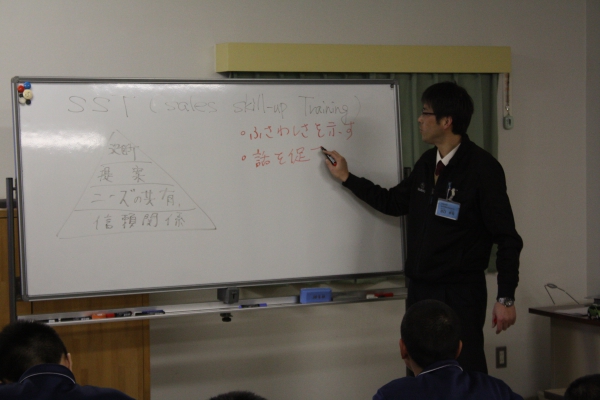 SST (sales skill-up Training)
・ふさわしさを示す
・話を促
提案
ニーズの共有
信頼関係